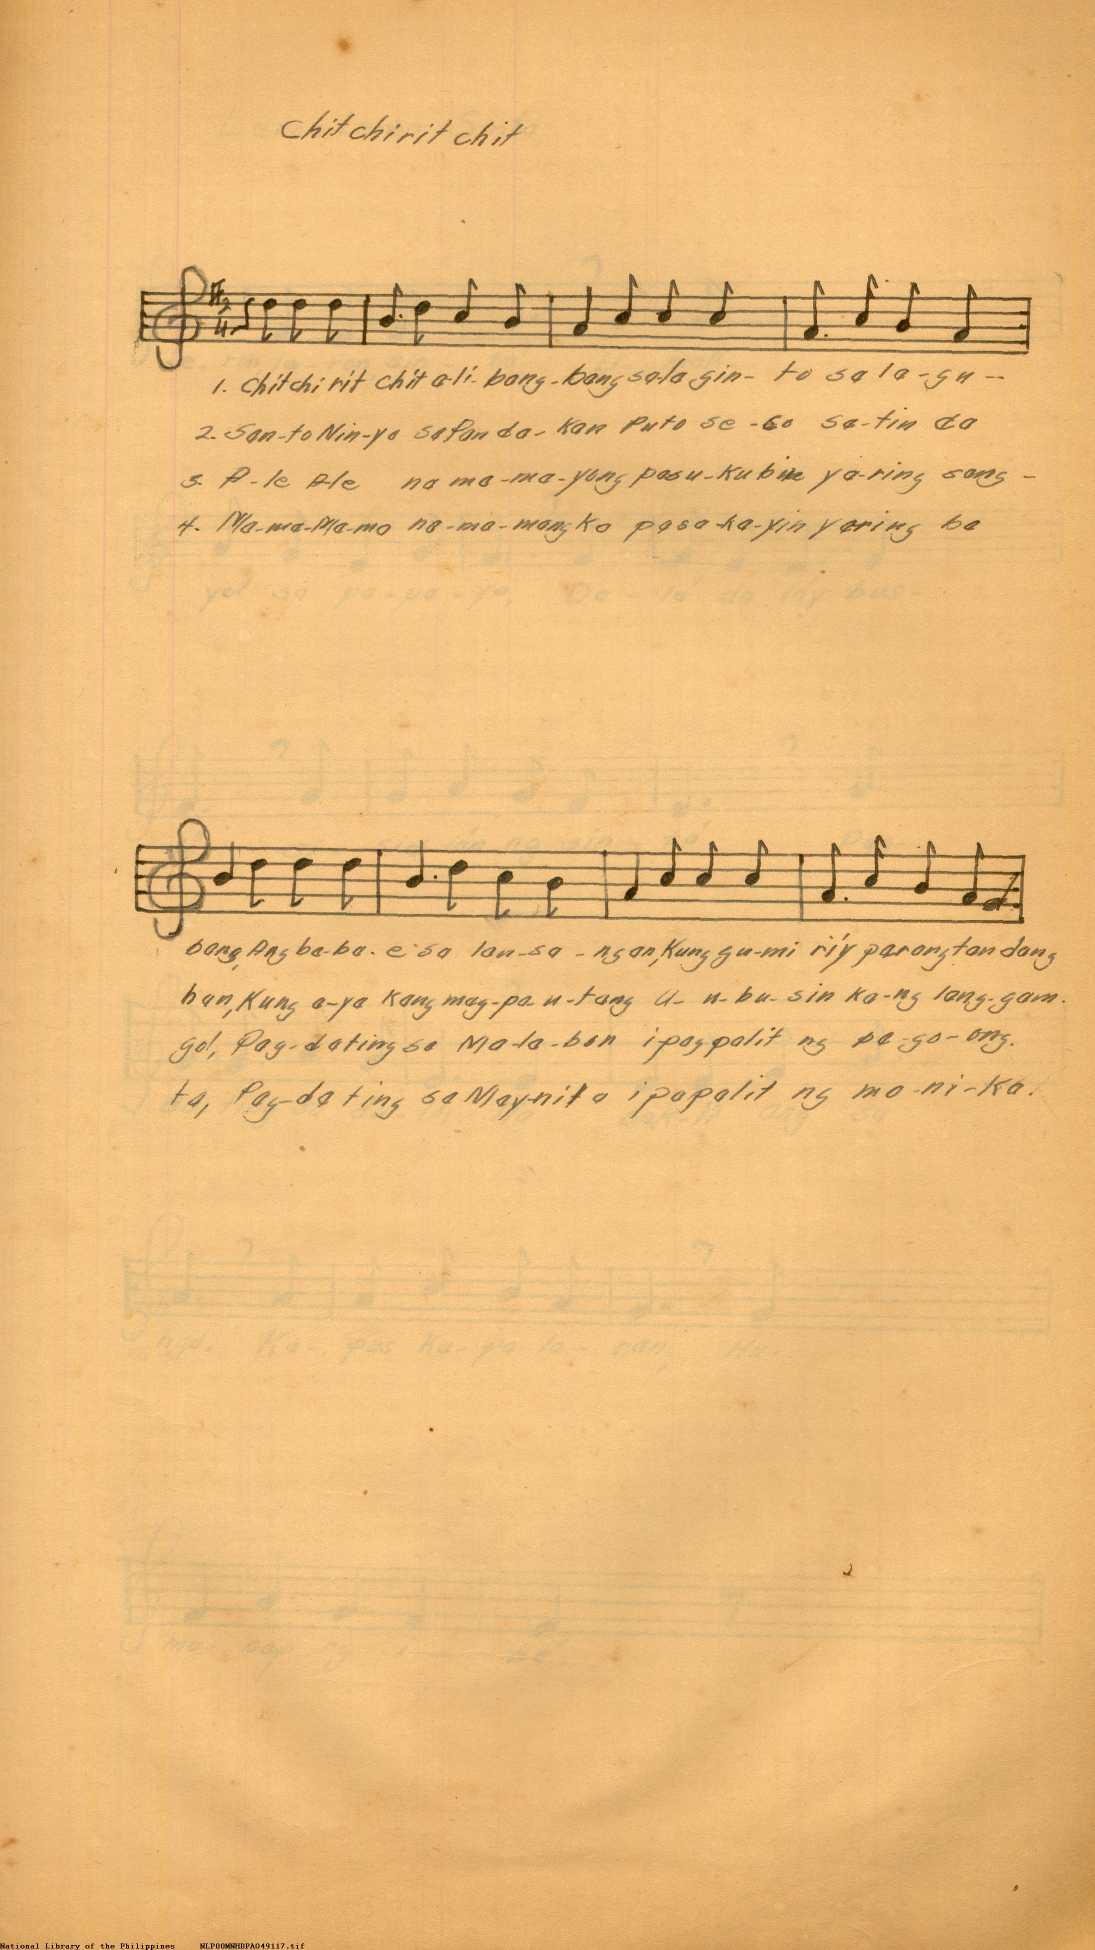 Chitchiritchit
2/4
1. Chitchi rit chit a-li- bang-bang sa-la gin- to sa la-gu--
2. San-to Nin-yo sa Pan da- kan Puto se-co sa-tin da
3. A-le Ale na ma-ma-yong pasu-kubin ya-ring sang-
4. Ma-ma-Ma-ma na-ma-mang ka pasa-ka-yin yaring ba
bang, Ang ba-ba-e sa lan-sa-ngan, Kung gu-mi ri'y parang tan dang
han, Kung a-ya kang mag-pa u-tang U-u-bu-sin ka-ng lang-gam.
gol, Pag-dating sa Ma-la-bon i-pag palit ng ba-go-ong.
ta, Pag-da ting sa May-nila ipapalit ng ma-ni-ka.
National Library of the Philippines NLP00MNHDPA049117.tif